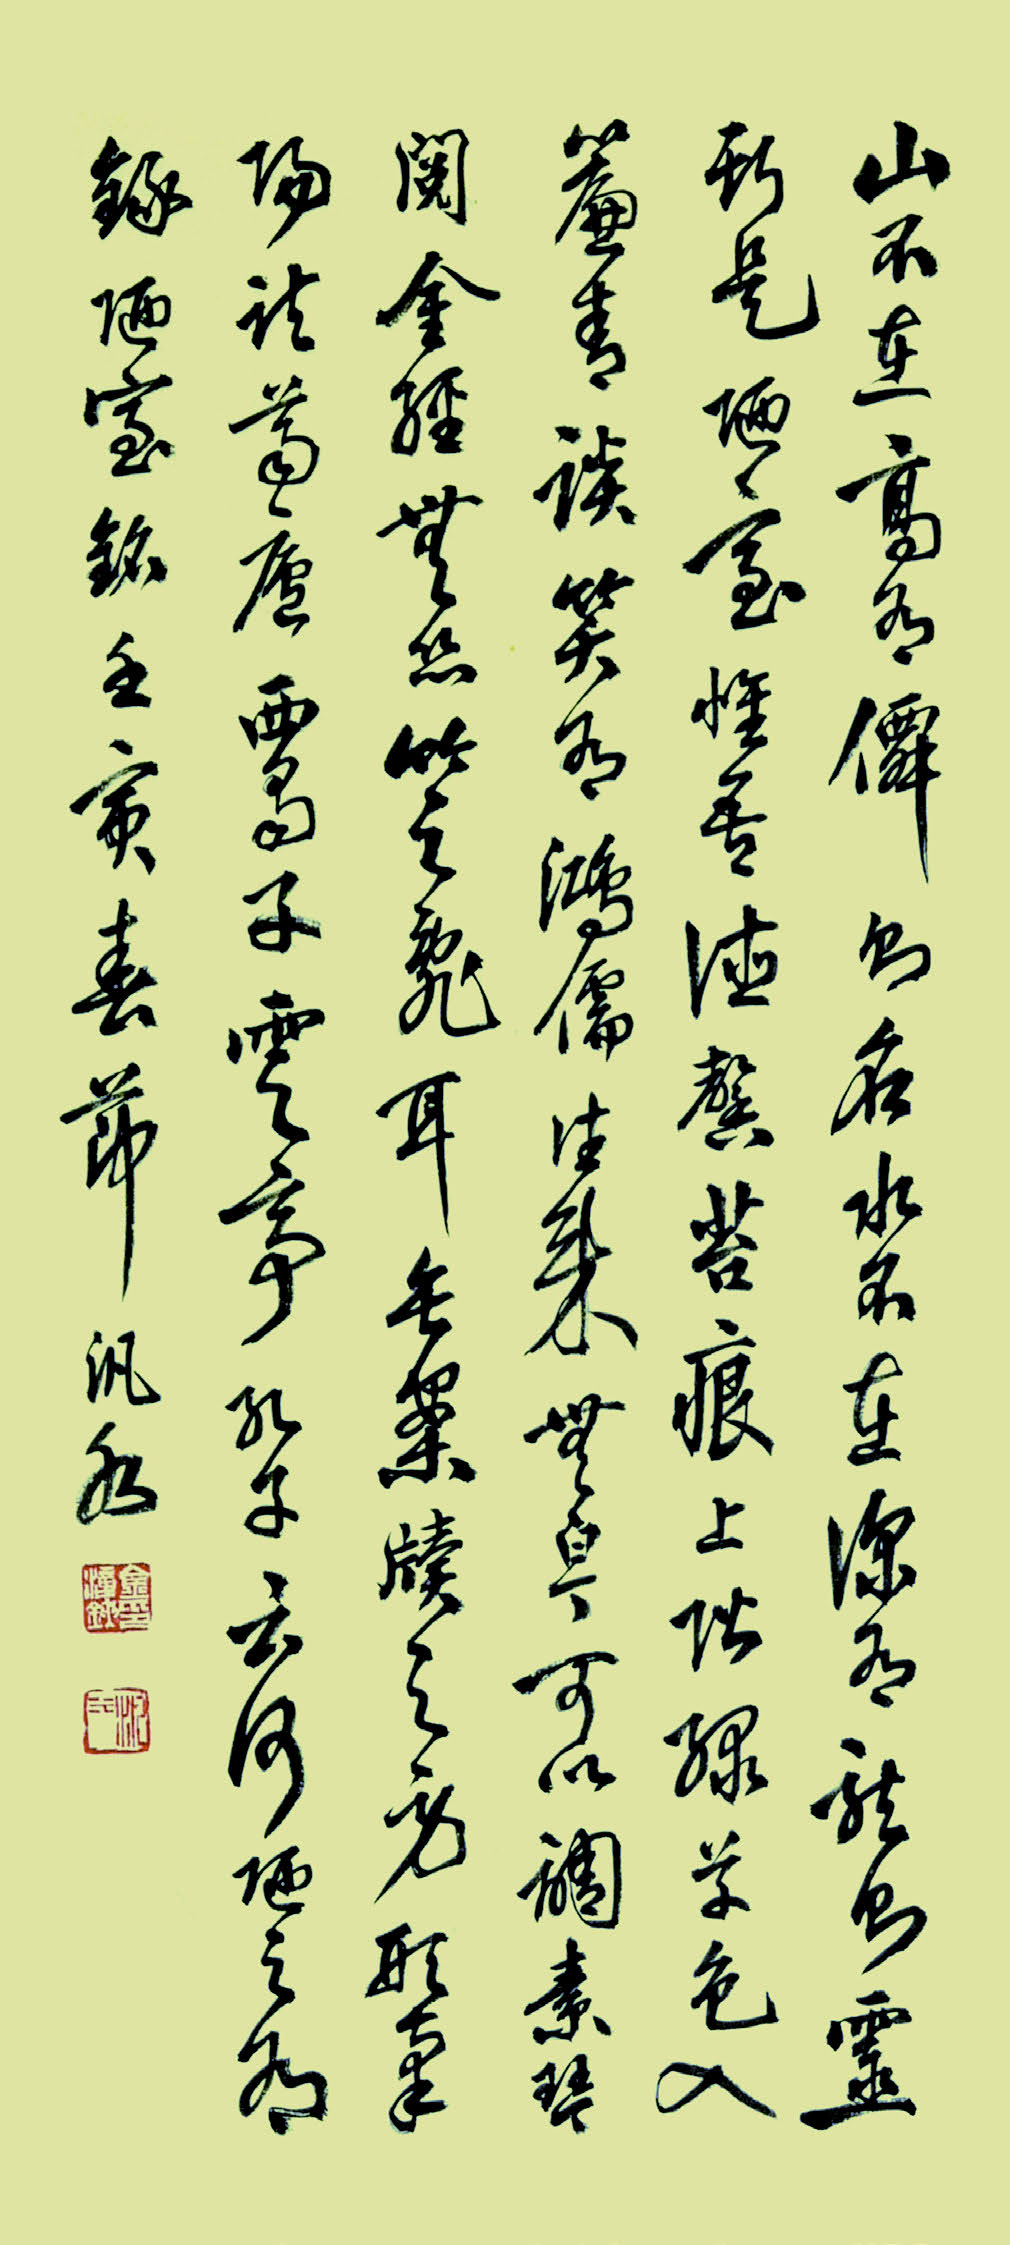 山不在高有僊則名水不在深有龍則靈
斯是陋室惟吾德馨苔痕上階綠草色入
簾青談笑有鴻儒往來無白丁可以調素琴
閱金經無絲竹之亂耳無案牘之勞形南
陽諸葛廬西蜀子雲亭孔子云何陋之有
錄陋室銘壬寅春節汎水